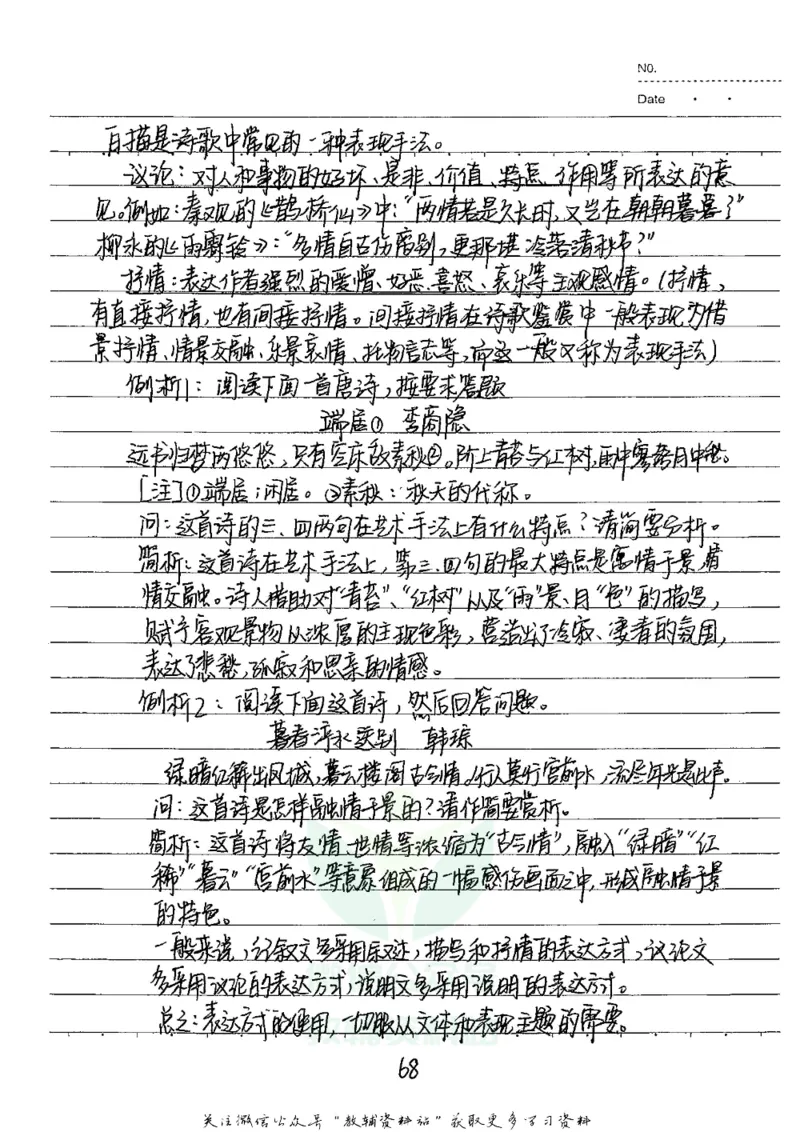 NO.
Date
白描是诗歌中常见的一种表现手法。
议论：对人和事物的好坏、是非、价值、特点、作用等所表达的意
见。例如：秦观的《鹊桥仙》中：“两情若是久长时，又岂在朝朝暮暮？”
柳永的《雨霖铃》：“多情自古伤离别，更那堪冷落清秋节？”
抒情：表达作者强烈的爱憎、好恶、喜怒、哀乐等主观感情。（抒情，
有直接抒情，也有间接抒情。间接抒情在诗歌鉴赏中一般表现为借
景抒情、情景交融、乐景哀情、托物言志等，而这一般又称为表现手法）
例析1：阅读下面一首唐诗，按要求答题
端居① 李商隐
远书归梦两悠悠，只有空床敌素秋②。阶下青苔与红树，雨中寥落月中愁。
［注］①端居：闲居。②素秋：秋天的代称。
问：这首诗的三、四两句在艺术手法上有什么特点？请简要分析。
简析：这首诗在艺术手法上，第三、四句的最大特点是寓情于景，情
情交融。诗人借助对“青苔”、“红树”以及“雨”景、月“色”的描写，
赋予客观景物以浓厚的主观色彩，营造出了冷寂、凄清的氛围，
表达了悲愁，孤寂和思亲的情感。
例析2：阅读下面这首诗，然后回答问题。
暮春浐水送别 韩琮
绿暗红稀出凤城，暮云楼阁古今情。行人莫听宫前水，流尽年光是此声。
问：这首诗是怎样融情于景的？请作简要赏析。
简析：这首诗将友情、世情等浓缩为“古今情”，融入“绿暗”“红
稀”“暮云”“宫前水”等意象组成的一幅感伤画面之中，形成融情于景
的特色。
一般来说，记叙文多采用叙述，描写和抒情的表达方式，议论文
多采用议论的表达方式，说明文多采用说明的表达方式。
总之：表达方式的使用，一切服从文体和表现主题的需要。
68
关注微信公众号“教辅资料站”获取更多学习资料